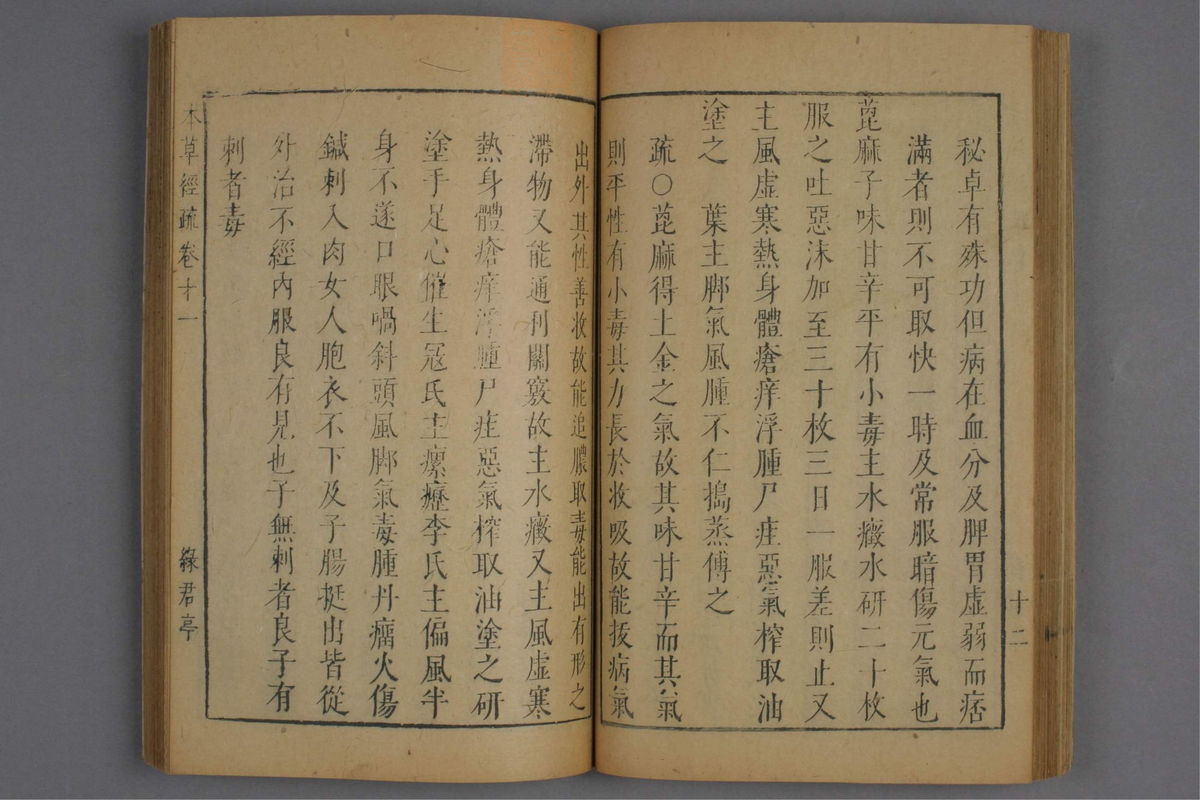 秘卓有殊功但病在血分及脾胃虛弱而痞
滿者則不可取快一時及常服暗傷元氣也
萞麻子味甘辛平有小毒主水癥水研二十枚
服之吐惡沫加至三十枚三日一服差則止又
主風虛寒熱身體瘡痒浮腫尸疰惡氣榨取油
塗之　葉主脚氣風腫不仁搗蒸傅之
疏○萞麻得土金之氣故其味甘辛而其氣
則平性有小毒其力長於收吸故能拔病氣
十二
出外其性善收故能追膿取毒能出有形之
滯物又能通利關竅故主水癥又主風虛寒
熱身體瘡痒浮腫尸疰惡氣榨取油塗之研
塗手足心催生冦氏主瘰癧李氏主偏風半
身不遂口眼喎斜頭風脚氣毒腫丹瘤火傷
鍼刺入肉女人胞衣不下及子腸挺出皆從
外治不經內服良有見也子無刺者良子有
刺者毒
本草經疏 卷十一 綠君亭